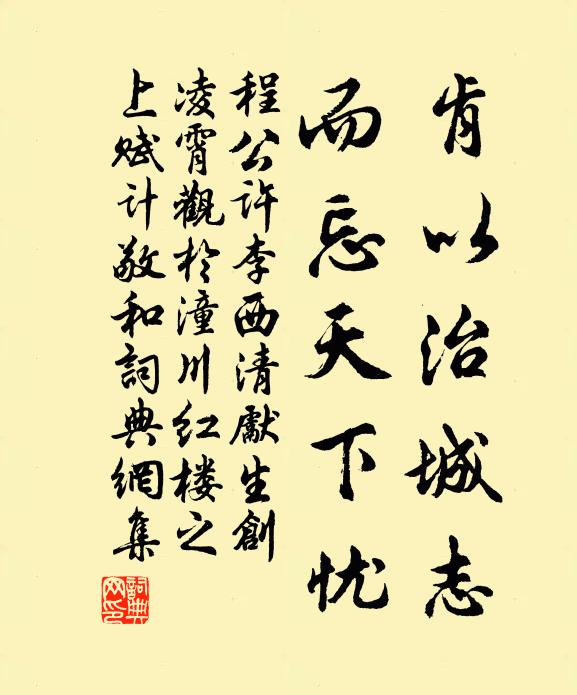 肯以治城志
而忘天下忧
程公许李西清献生創
凌霄觀於潼川红楼之
上赋计敬和詞典網集
詞典网印